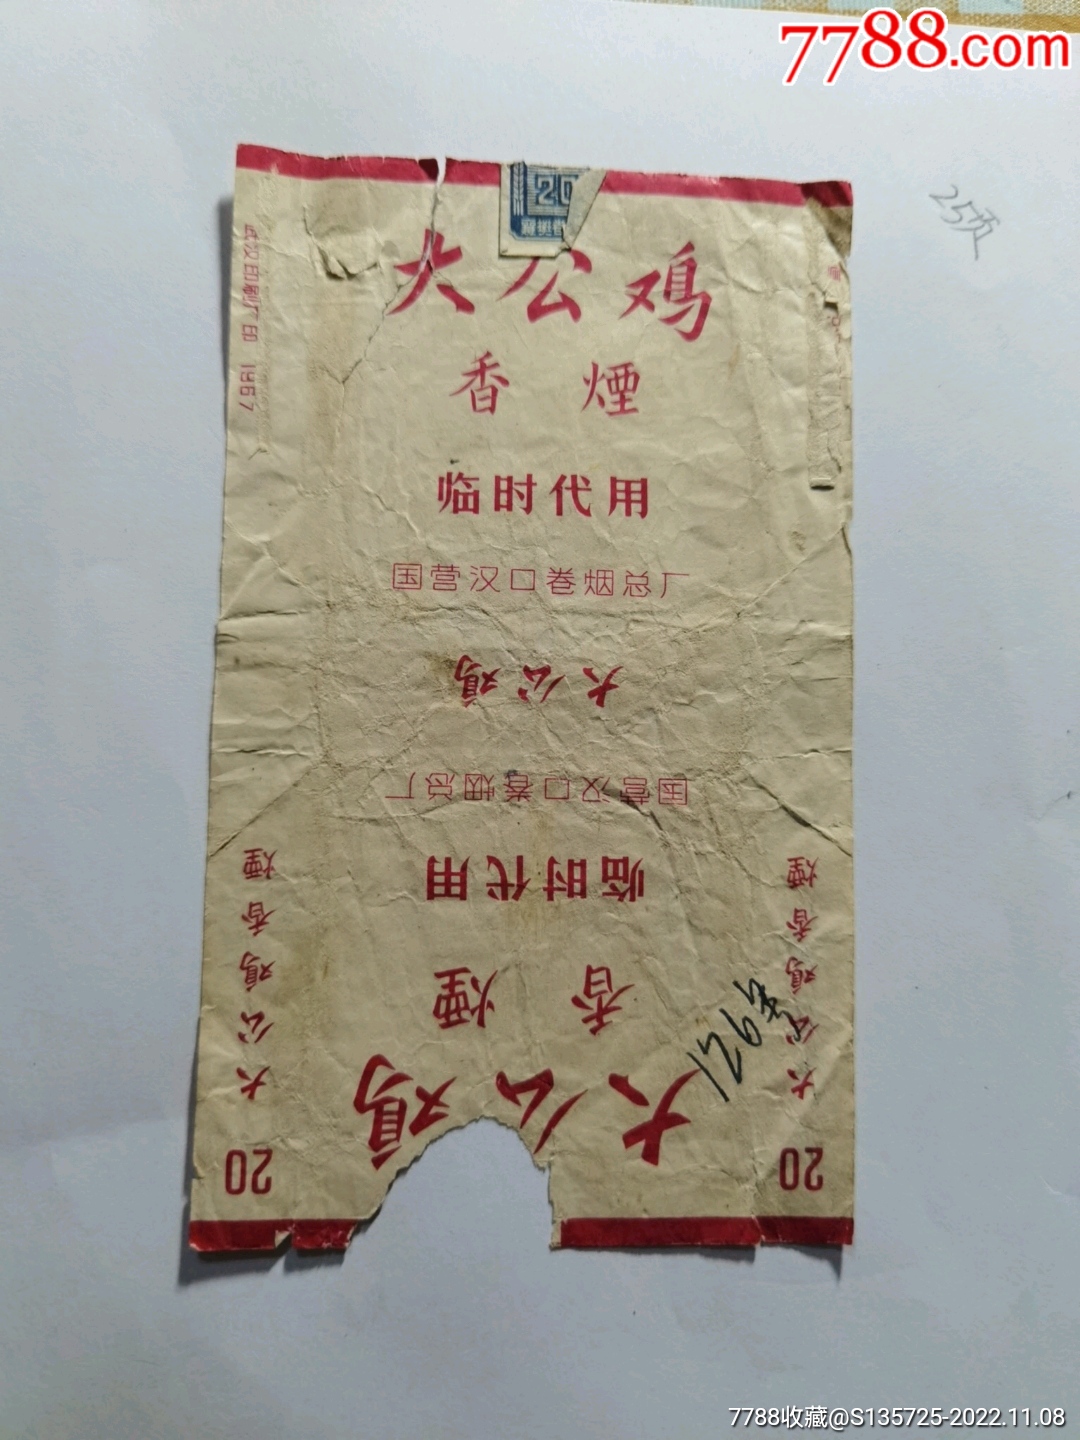 7788.com
25页
20
大公鸡
香煙
临时代用
国营汉口卷烟总厂
武汉印刷厂印 1967
大公鸡
国营汉口卷烟总厂
临时代用
香煙
大公鸡
大公鸡香煙
20
大公鸡香煙
20
126号
7788收藏@S135725-2022.11.08